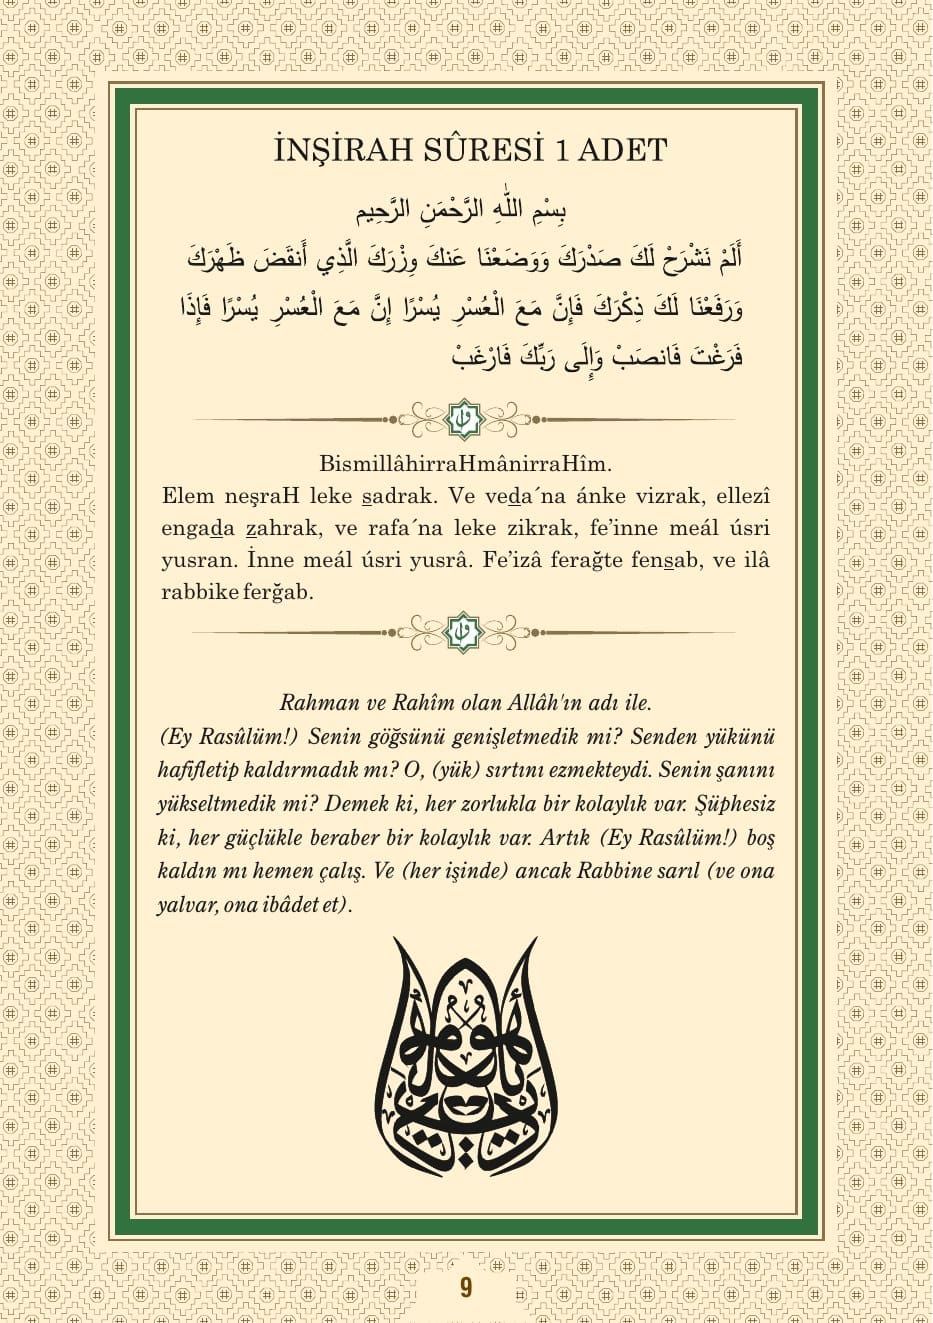 İNŞİRAH SÛRESİ 1 ADET
بِسْمِ اللّٰهِ الرَّحْمَنِ الرَّحِيم
أَلَمْ نَشْرَحْ لَكَ صَدْرَكَ وَوَضَعْنَا عَنكَ وِزْرَكَ الَّذِي أَنقَضَ ظَهْرَكَ
وَرَفَعْنَا لَكَ ذِكْرَكَ فَإِنَّ مَعَ الْعُسْرِ يُسْرًا إِنَّ مَعَ الْعُسْرِ يُسْرًا فَإِذَا
فَرَغْتَ فَانصَبْ وَإِلَى رَبِّكَ فَارْغَبْ
BismillâhirraHmânirraHîm.
Elem neşraH leke sadrak. Ve veda´na ánke vizrak, ellezî
engada zahrak, ve rafa´na leke zikrak, fe’inne meál úsri
yusran. İnne meál úsri yusrâ. Fe’izâ ferağte fensab, ve ilâ
rabbike ferğab.
Rahman ve Rahîm olan Allâh'ın adı ile.
(Ey Rasûlüm!) Senin göğsünü genişletmedik mi? Senden yükünü
hafifletip kaldırmadık mı? O, (yük) sırtını ezmekteydi. Senin şanını
yükseltmedik mi? Demek ki, her zorlukla bir kolaylık var. Şüphesiz
ki, her güçlükle beraber bir kolaylık var. Artık (Ey Rasûlüm!) boş
kaldın mı hemen çalış. Ve (her işinde) ancak Rabbine sarıl (ve ona
yalvar, ona ibâdet et).
9